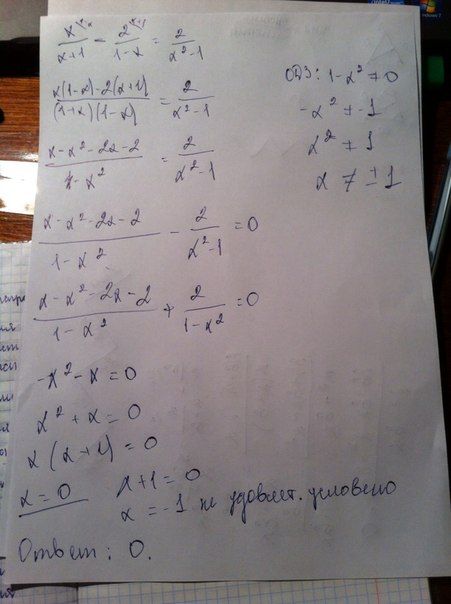 x/(x+1) = 2/(1-x) = 2/(x²-1)
(x(1-x)-2(x+1))/((1+x)(1-x)) = 2/(x²-1)
(x-x²-2x-2)/(1-x²) = 2/(x²-1)
(x-x²-2x-2)/(1-x²) - 2/(x²-1) = 0
(x-x²-2x-2)/(1-x²) + 2/(1-x²) = 0
-x²-x=0
x²+x=0
x(x+1)=0
x=0
x+1=0
x=-1 не удовлет. условию
Ответ: 0.
ОДЗ: 1-x²≠0
-x²≠-1
x²≠1
x≠±1